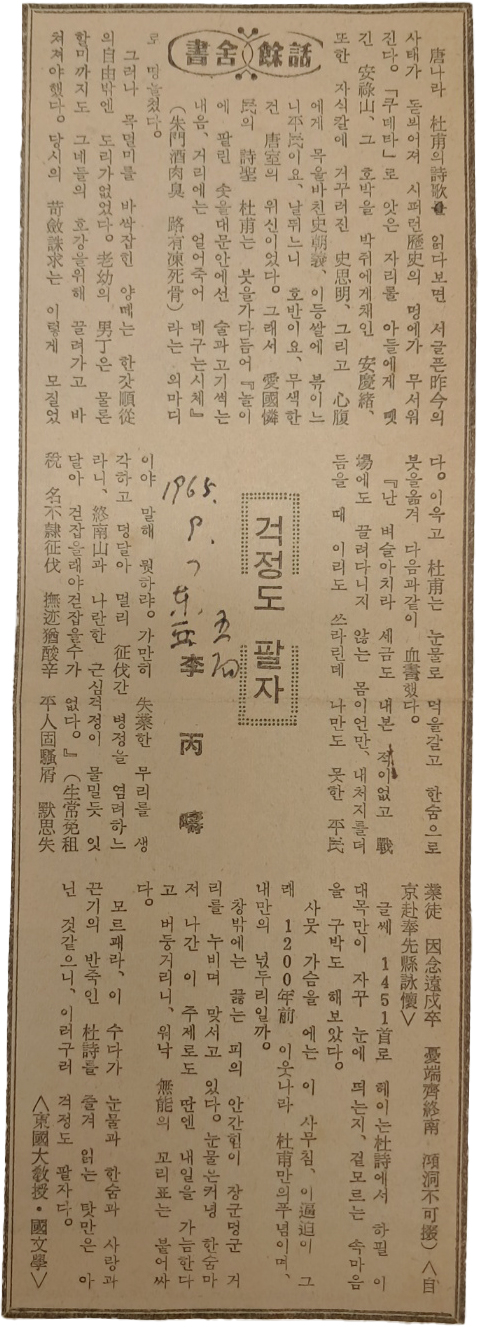 話餘舍書
唐나라 杜甫의 詩歌를 읽다보면 서글픈昨今의
사태가 돋뵈어져 시퍼런歷史의 멍에가 무서워
진다。「쿠데타」로 앗은 자리를 아들에게 뺏
긴 安祿山、그 호박을 박쥐에게채인 安慶緖、
또한 자식칼에 거꾸러진 史思明、그리고 心腹
에게 목을바친史朝義、이등쌀에 볶이느
니平民이요、날뛰느니 호반이요、무색한
건 唐室의 위신이었다。그래서 愛國憐
民의 詩聖 杜甫는 붓을가다듬어『놀이
에 팔린 솟을대문안에선 술과고기썩는
내음、거리에는 얼어죽어 데구는시체』
(朱門酒肉臭 路有凍死骨)라는 의마디
로 망울졌다。
그러나 목덜미를 바싹잡힌 양떼는 한갓順從
의自由밖엔 도리가없었다。老幼의 男丁은 물론
할미까지도 그네들의 호강을위해 끌려가고 바
쳐져야했다。당시의 苛斂誅求는 이렇게 모질었
다。이윽고 杜甫는 눈물로 먹을갈고 한숨으로
붓을옮겨 다음과같이 血書했다。
『난 벼슬아치라 세금도 내본 적이없고 戰
場에도 끌려다니지 않는 몸이언만、내처지를더
듬을 때 이리도 쓰라린데 나만도 못한 平民
걱정도 팔자
李丙疇
1965. 9. 7
이야 말해 뭣하랴。가만히 失業한 무리를 생
각하고 덩달아 멀리 征伐간 병정을 염려하느
라니、終南山과 나란한 근심걱정이 물밀듯 잇
달아 걷잡을래야걷잡을수가 없다。』(生常免租
稅 名不隷征伐 撫迹猶酸辛 平人固騷屑 默思失
業徒 因念遠戍卒 憂端齊終南 澒洞不可掇)〈自
京赴奉先縣詠懷〉
글쎄 1451首로 헤이는杜詩에서 하필 이
대목만이 자꾸 눈에 띄는지、걸모르는 속마음
을 구박도 해보았다。
사뭇 가슴을 에는 이 사무침、이逼迫이 그
래 1200年前 이웃나라 杜甫만의푸념이며、
내만의 넋두리일까。
창밖에는 끓는 피의 안간힘이 장군멍군 거
리를 누비며 맞서고 있다。눈물은커녕 한숨마
저 나간 이 주제로도 딴엔 내일을 가늠한다
고 버둥거리니、워낙 無能의 꼬리표는 붙어싸
다。
모르괘라、이 수다가 눈물과 한숨과 사랑과
끈기의 반죽인 杜詩를 즐겨 읽는 탓만은 아
닌 것같으니、이러구러 걱정도 팔자다。
〈東國大敎授・國文學〉